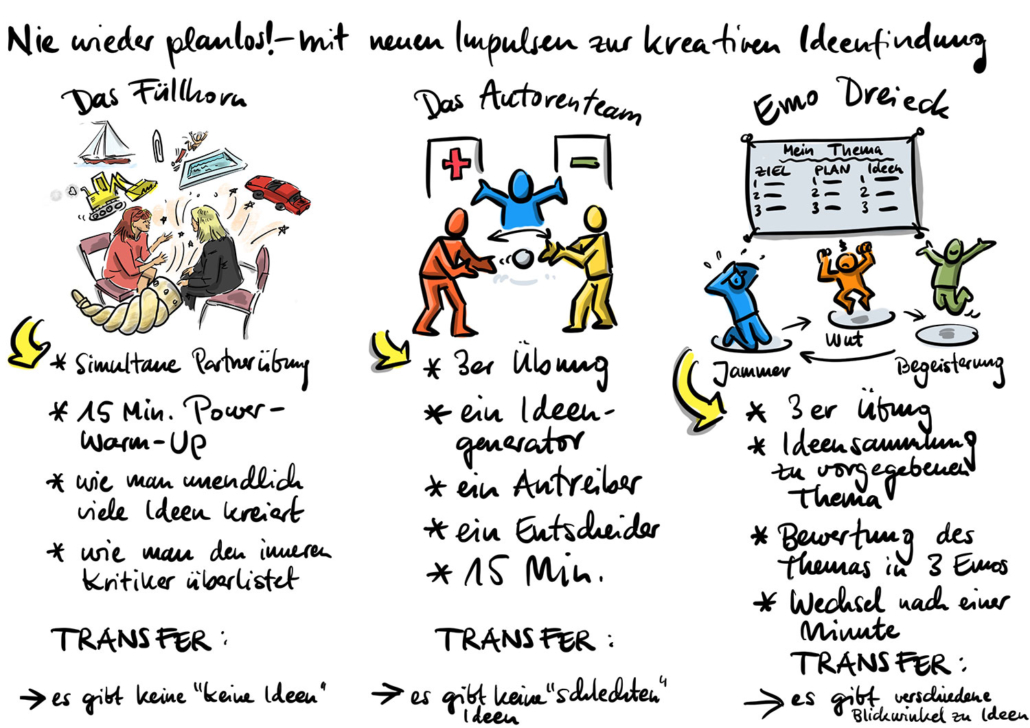 Nie wieder planlos! – mit neuen Impulsen zur kreativen Ideenfindung
Das Füllhorn
* Simultane Partnerübung
* 15 Min. Power-
Warm-Up
* wie man unendlich
viele Ideen kreiert
* wie man den inneren
Kritiker überlistet
TRANSFER:
→ es gibt keine "keine Ideen"
Das Autorenteam
+
–
* 3er Übung
* ein Ideen-
generator
* ein Antreiber
* ein Entscheider
* 15 Min.
TRANSFER:
→ es gibt keine "schlechten"
Ideen
Emo Dreieck
Mein Thema
ZIEL PLAN Ideen
1 1 1
2 2 2
3 3 3
Jammer
Wut
Begeisterung
* 3er Übung
* Ideensammlung
zu vorgegebenen
Thema
* Bewertung des
Themas in 3 Emos
* Wechsel nach einer
Minute
TRANSFER:
→ es gibt verschiedene
Blickwinkel zu Ideen